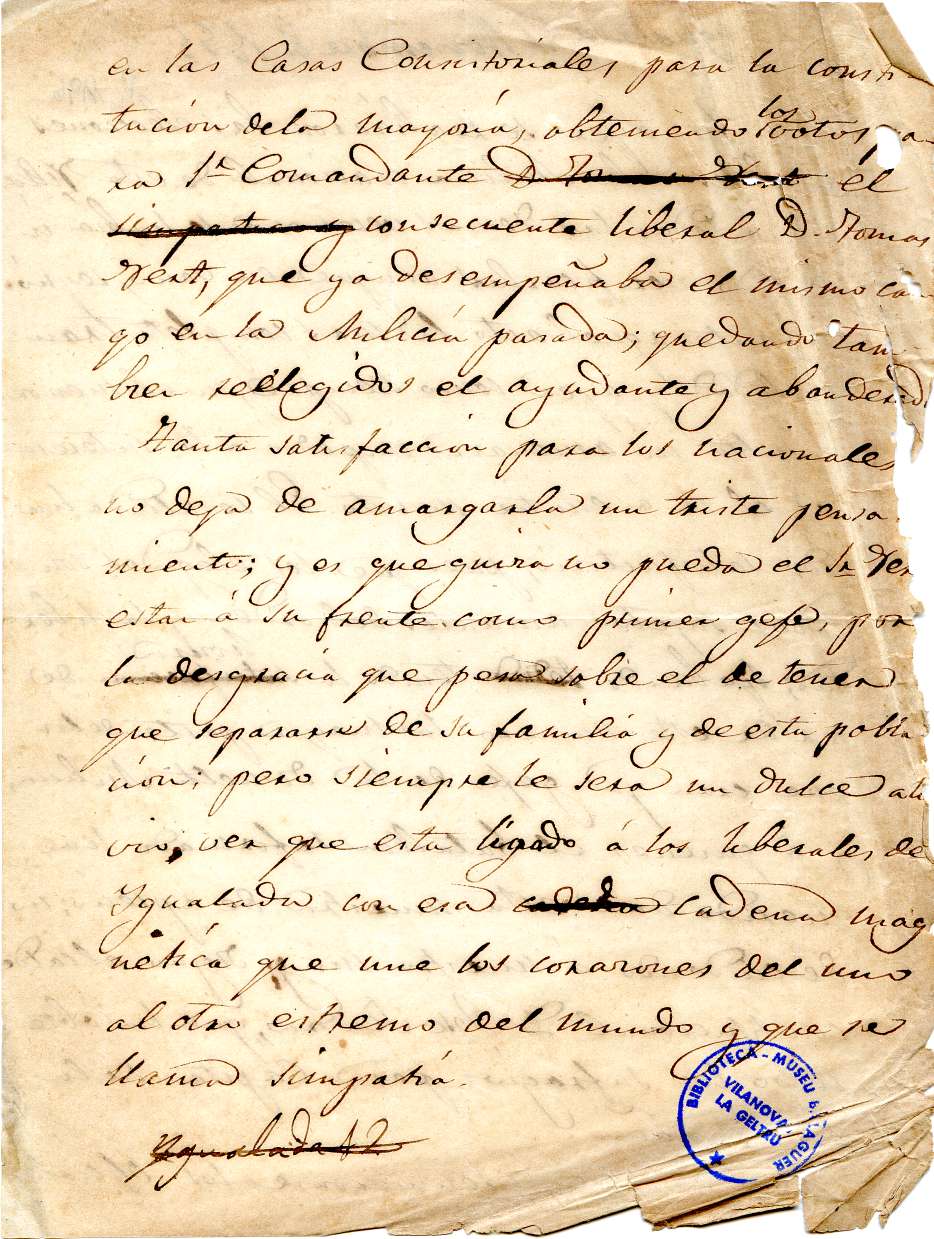 en las Casas Consistoriales para la consti
tución dela mayoría, obteniendo los votos pa
ra 1r Comandante D. Tomas Vert el
simpatico y consecuente liberal D. Tomas
Vert, que ya desempeñaba el mismo car
go en la Milicia pasada; quedando tam-
bien reelegidos el ayudante y abanderado
Tanta satisfacción para los nacionales
no deja de amargarla un triste pensa-
miento; y es que quiza no pueda el Sr. Ver
estar á su frente como primer gefe, por
la desgracia que pesa sobre el de tener
que separarse de su familia y de esta pobla
ción; pero siempre le sera un dulce ali
vio, ver que esta ligado á los liberales de
Igualada con esa cadena cadena mag
netica que une los corazones del uno
al otro estremo del mundo y que se
llama simpatía.
Ygualada 12
BIBLIOTECA - MUSEU B LAGUER
VILANOVA
LA GELTRÚ